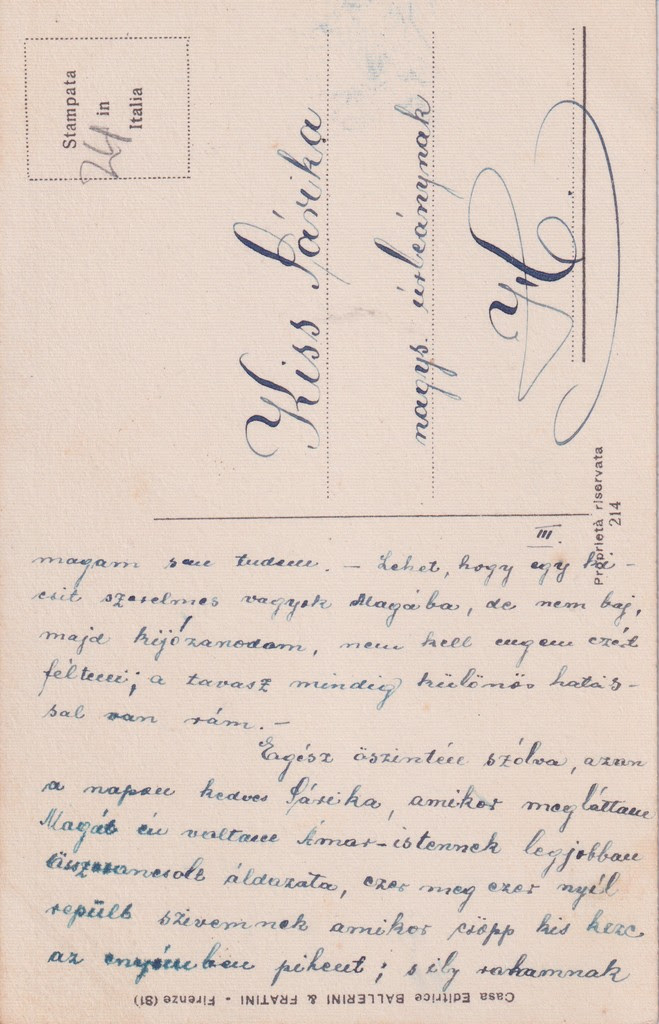 Stampata
in
Italia
24
Kiss Sárika
nagys. úrleánynak
Proprietà riservata
214
III.
magam sem tudom. – Lehet, hogy egy ki-
csit szerelmes vagyok Magába, de nem baj,
majd kijózanodom, nem kell engem ezért
félteni; a tavasz mindig különös hatás-
sal van rám. –
Egész őszintén szólva, azon
a napon kedves Sárika, amikor megláttam
Magát én voltam Ámor-istennek legjobban
összerancsolt áldozata, ezer meg ezer nyíl
repült szivemnek amikor csöpp kis keze
az enyémben pihent; s ily rohamnak
Casa Editrice BALLERINI & FRATINI - Firenze (81)